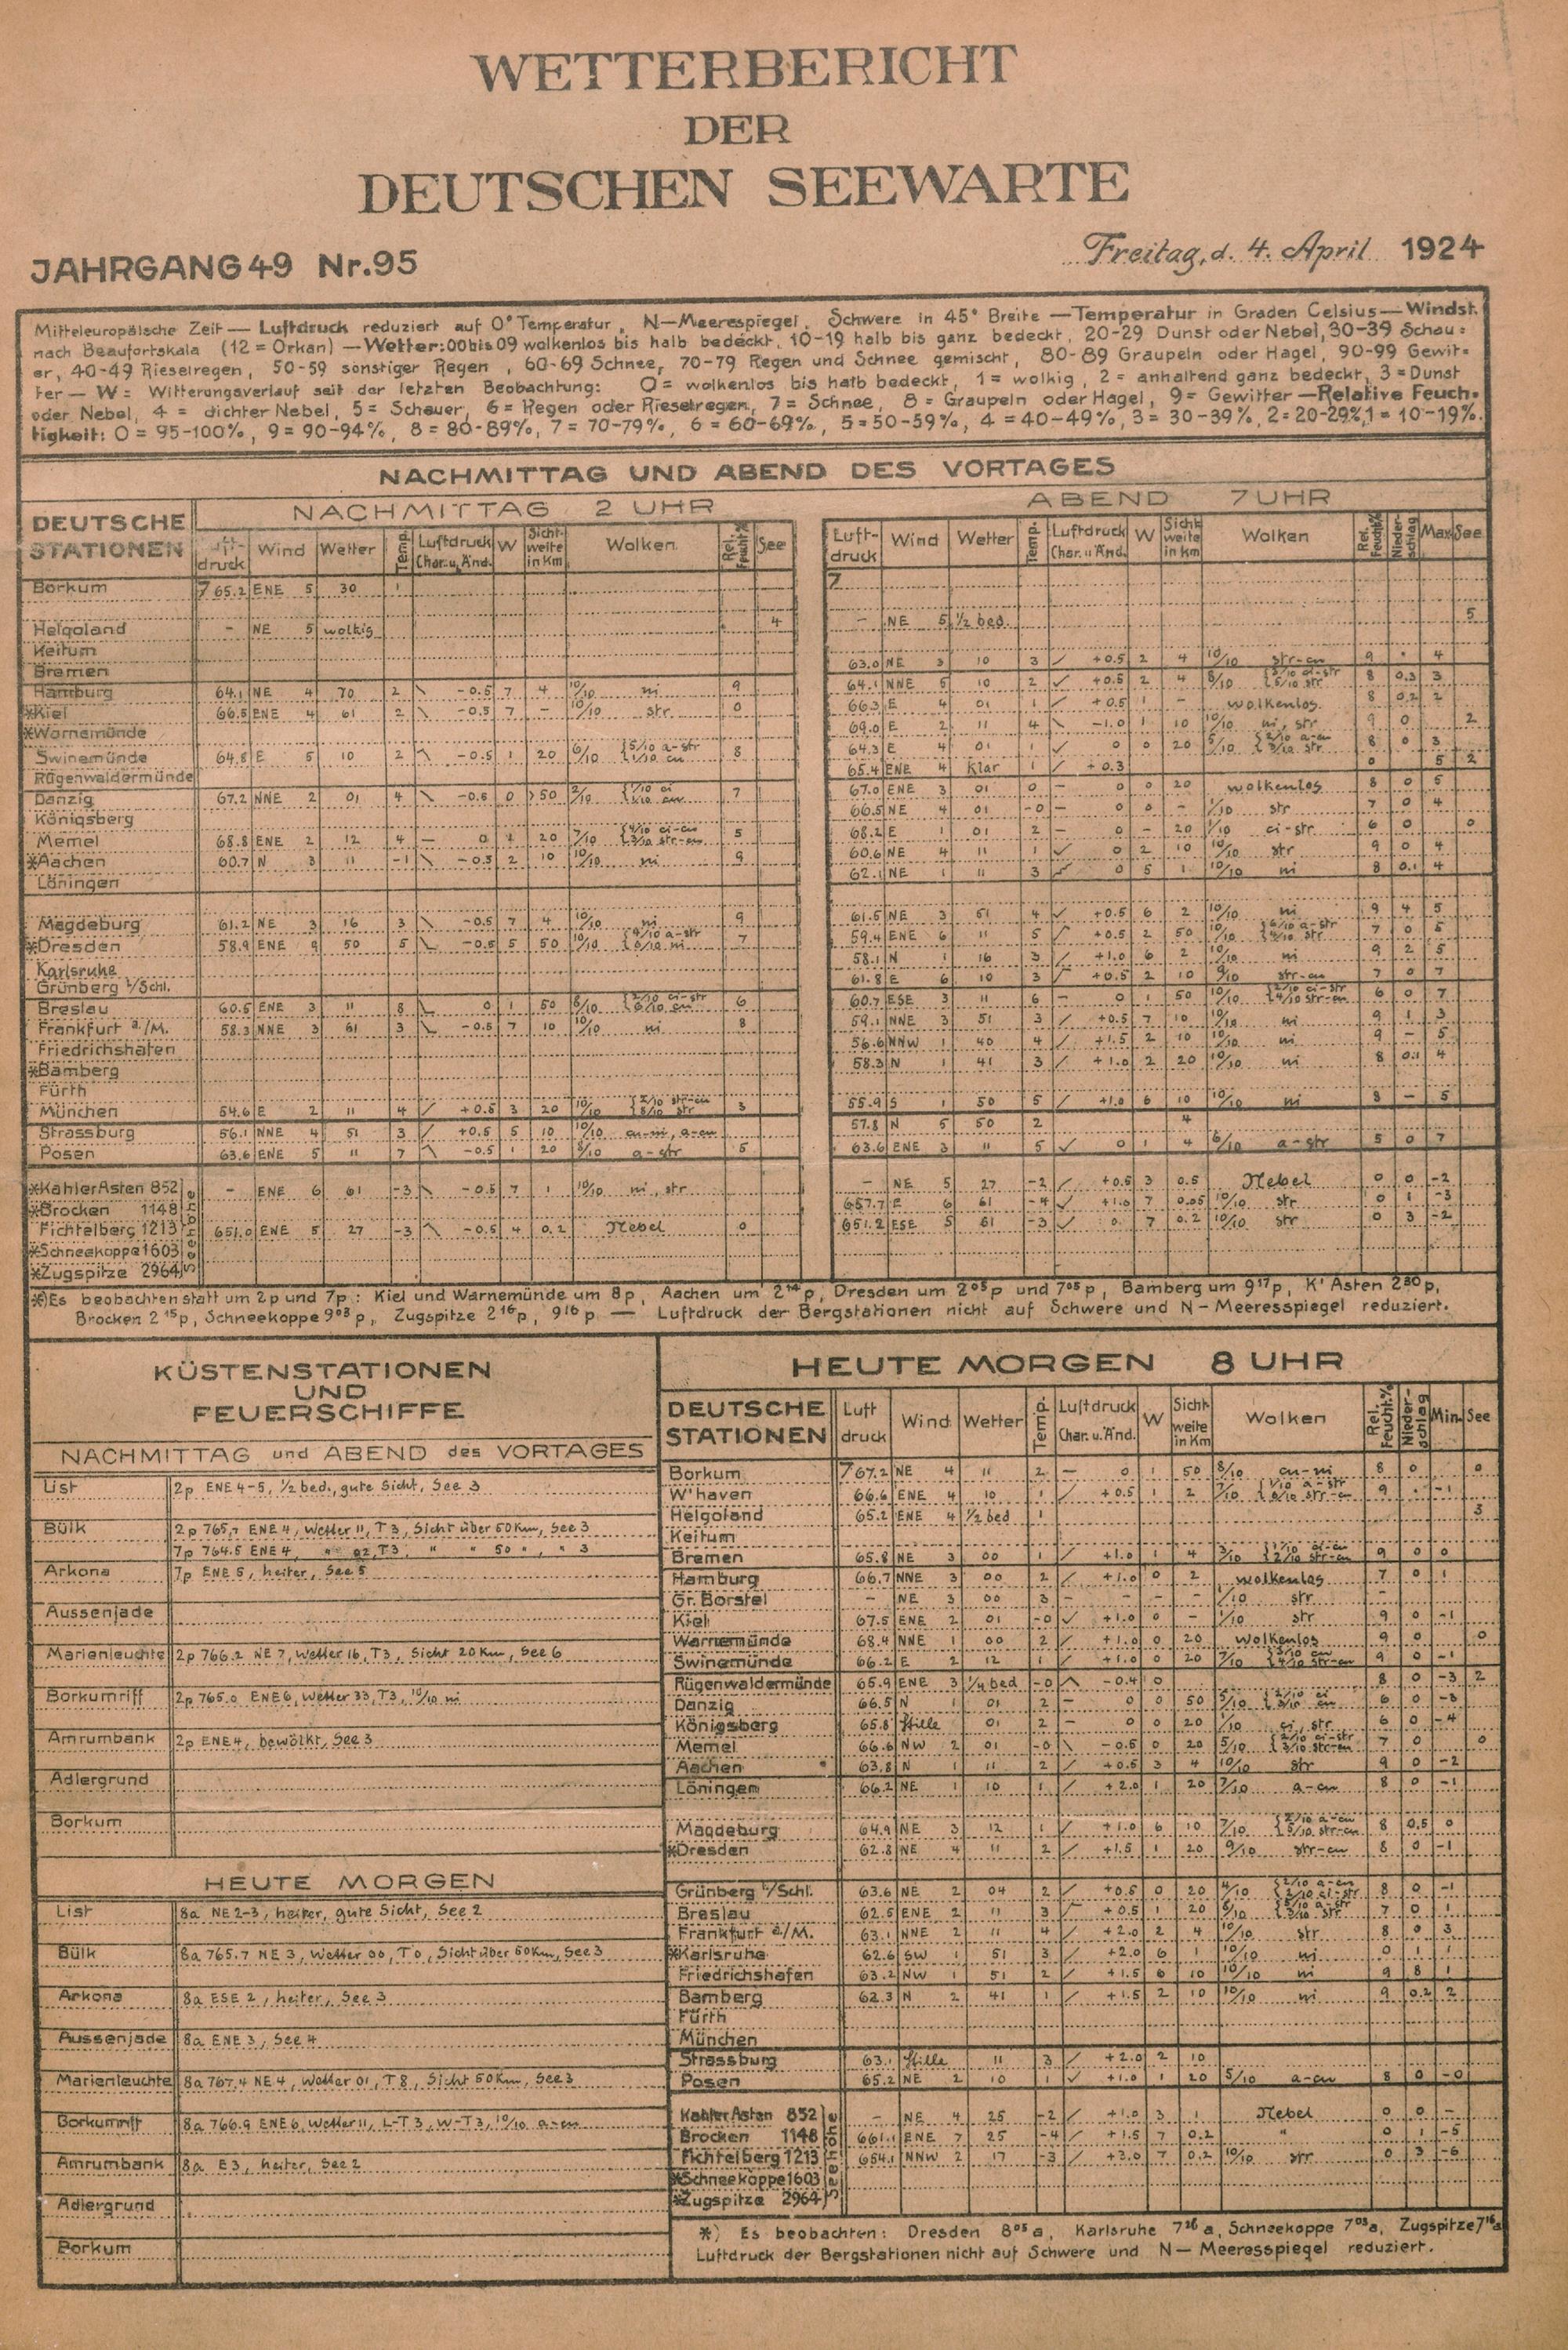 WETTERBERICHT
DER
DEUTSCHEN SEEWARTE
JAHRGANG 49 Nr. 95
Freitag, d. 4. April 1924
Mitteleuropäische Zeit — Luftdruck reduziert auf 0° Temperatur, N—Meerespiegel, Schwere in 45° Breite — Temperatur in Graden Celsius — Windst.
nach Beaufortskala (12 = Orkan) — Wetter: 00 bis 09 wolkenlos bis halb bedeckt, 10-19 halb bis ganz bedeckt, 20-29 Dunst oder Nebel, 30-39 Schau=
er, 40-49 Rieselregen, 50-59 sonstiger Regen, 60-69 Schnee, 70-79 Regen und Schnee gemischt, 80-89 Graupeln oder Hagel, 90-99 Gewit=
ter — W = Witterungsverlauf seit der letzten Beobachtung: 0 = wolkenlos bis halb bedeckt, 1 = wolkig, 2 = anhaltend ganz bedeckt, 3 = Dunst
oder Nebel, 4 = dichter Nebel, 5 = Schauer, 6 = Regen oder Rieselregen, 7 = Schnee, 8 = Graupeln oder Hagel, 9 = Gewitter — Relative Feuch=
tigkeit: 0 = 95-100%, 9 = 90-94%, 8 = 80-89%, 7 = 70-79%, 6 = 60-69%, 5 = 50-59%, 4 = 40-49%, 3 = 30-39%, 2 = 20-29%, 1 = 10-19%.
NACHMITTAG UND ABEND DES VORTAGES
DEUTSCHE STATIONEN
NACHMITTAG 2 UHR
Luftdruck Wind Wetter Temp. Luftdruck Char. u. Änd. W Sichtweite in Km Wolken Rel. Feucht.% See
ABEND 7 UHR
Luftdruck Wind Wetter Temp. Luftdruck Char. u. Änd. W Sichtweite in km Wolken Rel. Feucht.% Niederschlag Max See
Borkum 765.2 ENE 5 30 1 7
Helgoland – NE 5 wolkig 4 – NE 5 1/2 bed. 5
Keitum
Bremen 63.0 NE 3 10 3 +0.5 2 4 10/10 str-cu 9 • 4
Hamburg 64.1 NE 4 70 2 -0.5 7 4 10/10 ni 9 64.1 NNE 5 10 2 +0.5 2 4 8/10 8 0.3 3
*Kiel 66.5 ENE 4 61 2 -0.5 7 – 10/10 str 0 66.3 E 4 01 1 +0.5 1 – wolkenlos 8 0.2 2
*Warnemünde 69.0 E 2 11 4 -1.0 1 10 10/10 ni, str 9 0 2
Swinemünde 64.8 E 5 10 2 -0.5 1 20 6/10 5/10 a-str 1/10 cu 8 64.3 E 4 01 1 0 0 20 5/10 2/10 a-cu 3/10 str 8 0 3
Rügenwaldermünde 65.4 ENE 4 klar 1 +0.3 0 5 2
Danzig 67.2 NNE 2 01 4 -0.5 0 >50 2/10 1/10 ci 1/10 cu 7 67.0 ENE 3 01 0 – 0 0 20 wolkenlos 8 0 5
Königsberg 66.5 NE 4 01 -0 – 0 0 – 1/10 str 7 0 4
Memel 68.8 ENE 2 12 4 — 0 1 20 7/10 4/10 ci-cu 3/10 str-cu 5 68.2 E 1 01 2 – 0 – 20 1/10 ci-str 6 0 0
*Aachen 60.7 N 3 11 -1 -0.5 2 10 10/10 ni 9 60.6 NE 4 11 1 0 2 10 10/10 str 9 0 4
Löningen 62.1 NE 1 11 3 0 5 1 10/10 ni 8 0.1 4
Magdeburg 61.2 NE 3 16 3 -0.5 7 4 10/10 ni 9 61.5 NE 3 51 4 +0.5 6 2 10/10 ni 9 4 5
*Dresden 58.9 ENE 9 50 5 -0.5 5 50 10/10 4/10 a-str 6/10 ni 7 59.4 ENE 6 11 5 +0.5 2 50 10/10 6/10 a-str 4/10 str 7 0 5
Karlsruhe 58.1 N 1 16 3 +1.0 6 2 10/10 ni 9 2 5
Grünberg i/Schl. 61.8 E 6 10 3 +0.5 2 10 9/10 str-cu 7 0 7
Breslau 60.5 ENE 3 11 8 0 1 50 8/10 2/10 ci-str 6/10 cu 6 60.7 ESE 3 11 6 – 0 1 50 10/10 2/10 ci-str 4/10 str-cu 6 0 7
Frankfurt a./M. 58.3 NNE 3 61 3 -0.5 7 10 10/10 ni 8 59.1 NNE 3 51 3 +0.5 7 10 10/10 ni 9 1 3
Friedrichshafen 56.6 NNW 1 40 4 +1.5 2 10 10/10 ni 9 – 5
*Bamberg 58.3 N 1 41 3 +1.0 2 20 10/10 ni 8 0.1 4
Fürth
München 54.6 E 2 11 4 +0.5 3 20 10/10 2/10 str-cu 8/10 str 3 55.9 S 1 50 5 +1.0 6 10 10/10 ni 8 – 5
Strassburg 56.1 NNE 4 51 3 +0.5 5 10 10/10 cu-ni, a-cu 57.8 N 5 50 2 4
Posen 63.6 ENE 5 11 7 -0.5 1 20 8/10 a-str 5 63.6 ENE 3 11 5 0 1 4 6/10 a-str 5 0 7
*Kahler Asten 852 – ENE 6 61 -3 -0.5 7 1 10/10 ni, str – NE 5 27 -2 +0.5 3 0.5 Nebel 0 0 -2
*Brocken 1148 657.7 E 6 61 -4 +1.0 7 0.05 10/10 str 0 1 -3
Fichtelberg 1213 651.0 ENE 5 27 -3 -0.5 4 0.2 Nebel 0 651.2 ESE 5 61 -3 0. 7 0.2 10/10 str 0 3 -2
*Schneekoppe 1603
*Zugspitze 2964
Seehöhe
*) Es beobachten statt um 2p und 7p: Kiel und Warnemünde um 8p, Aachen um 2 14 p, Dresden um 2 05 p und 7 05 p, Bamberg um 9 17 p, K' Asten 2 30 p,
Brocken 2 15 p, Schneekoppe 9 03 p, Zugspitze 2 16 p, 9 16 p — Luftdruck der Bergstationen nicht auf Schwere und N—Meeresspiegel reduziert.
KÜSTENSTATIONEN
UND
FEUERSCHIFFE
NACHMITTAG und ABEND des VORTAGES
List 2p ENE 4-5, 1/2 bed., gute Sicht, See 3
Bülk 2p 765.7 ENE 4, Wetter 11, T 3, Sicht über 50 Km, See 3
7p 764.5 ENE 4, " 02, T 3, " " 50 ", " 3
Arkona 7p ENE 5, heiter, See 5
Aussenjade
Marienleuchte 2p 766.2 NE 7, Wetter 16, T 3, Sicht 20 Km, See 6
Borkumriff 2p 765.0 ENE 6, Wetter 33, T 3, 10/10 ni
Amrumbank 2p ENE 4, bewölkt, See 3
Adlergrund
Borkum
HEUTE MORGEN
List 8a NE 2-3, heiter, gute Sicht, See 2
Bülk 8a 765.7 NE 3, Wetter 00, T 0, Sicht über 50 Km, See 3
Arkona 8a ESE 2, heiter, See 3
Aussenjade 8a ENE 3, See 4
Marienleuchte 8a 767.4 NE 4, Wetter 01, T 8, Sicht 50 Km, See 3
Borkumriff 8a 766.9 ENE 6, Wetter 11, L-T 3, W-T 3, 10/10 a-cu
Amrumbank 8a E 3, heiter, See 2
Adlergrund
Borkum
HEUTE MORGEN 8 UHR
DEUTSCHE STATIONEN Luftdruck Wind Wetter Temp. Luftdruck Char. u. Änd. W Sichtweite in Km Wolken Rel. Feucht.% Niederschlag Min. See
Borkum 767.2 NE 4 11 2 — 0 1 50 8/10 cu-ni 8 0 0
W'haven 66.6 ENE 4 10 1 +0.5 1 2 7/10 1/10 a-str 6/10 str-cu 9 . -1
Helgoland 65.2 ENE 4 1/2 bed 1 3
Keitum
Bremen 65.8 NE 3 00 1 +1.0 1 4 3/10 1/10 ci-cu 2/10 str-cu 9 0 0
Hamburg 66.7 NNE 3 00 2 +1.0 0 2 wolkenlos 7 0 1
Gr. Borstel – NE 3 00 3 – – – – 1/10 str –
Kiel 67.5 ENE 2 01 -0 +1.0 0 – 1/10 str 9 0 -1
Warnemünde 68.4 NNE 1 00 2 +1.0 0 20 wolkenlos 9 0 0
Swinemünde 66.2 E 2 12 1 +1.0 0 20 7/10 3/10 cu 4/10 str-cu 9 0 -1
Rügenwaldermünde 65.9 ENE 3 1/4 bed -0 -0.4 0 8 0 -3 2
Danzig 66.5 N 1 01 2 – 0 0 50 5/10 2/10 ci 3/10 cu 6 0 -3
Königsberg 65.8 Stille 01 2 – 0 0 20 1/10 ci, str 6 0 -4
Memel 66.6 NW 2 01 -0 -0.5 0 20 5/10 2/10 ci-str 3/10 str-cu 7 0 0
Aachen 63.8 N 1 11 2 +0.5 3 4 10/10 str 9 0 -2
Löningen 66.2 NE 1 10 1 +2.0 1 20 7/10 a-cu 8 0 -1
Magdeburg 64.9 NE 3 12 1 +1.0 6 10 7/10 2/10 a-cu 5/10 str-cu 8 0.5 0
*Dresden 62.8 NE 4 11 2 +1.5 1 20 9/10 str-cu 8 0 -1
Grünberg i/Schl. 63.6 NE 2 04 2 +0.5 0 20 4/10 2/10 a-cu 2/10 ci-str 8 0 -1
Breslau 62.5 ENE 2 11 3 +0.5 1 20 8/10 5/10 a-str 3/10 str 7 0 1
Frankfurt a/M. 63.1 NNE 2 11 4 +2.0 2 4 10/10 str 8 0 3
*Karlsruhe 62.6 SW 1 51 3 +2.0 6 1 10/10 ni 0 1 1
Friedrichshafen 63.2 NW 1 51 2 +1.5 6 10 10/10 ni 9 8 1
Bamberg 62.3 N 2 41 1 +1.5 2 10 10/10 ni 9 0.2 2
Fürth
München
Strassburg 63.1 Stille 11 3 +2.0 2 10
Posen 65.2 NE 2 10 1 +1.0 1 20 5/10 a-cu 8 0 -0
Kahler Asten 852 – NE 4 25 -2 +1.0 3 1 Nebel 0 0 –
Brocken 1148 661.1 ENE 7 25 -4 +1.5 7 0.2 " 0 1 -5
Fichtelberg 1213 654.1 NNW 2 17 -3 +3.0 7 0.2 10/10 str 0 3 -6
*Schneekoppe 1603
*Zugspitze 2964
Seehöhe
*) Es beobachten: Dresden 8 05 a, Karlsruhe 7 26 a, Schneekoppe 7 03 a, Zugspitze 7 16 a
Luftdruck der Bergstationen nicht auf Schwere und N—Meeresspiegel reduziert.